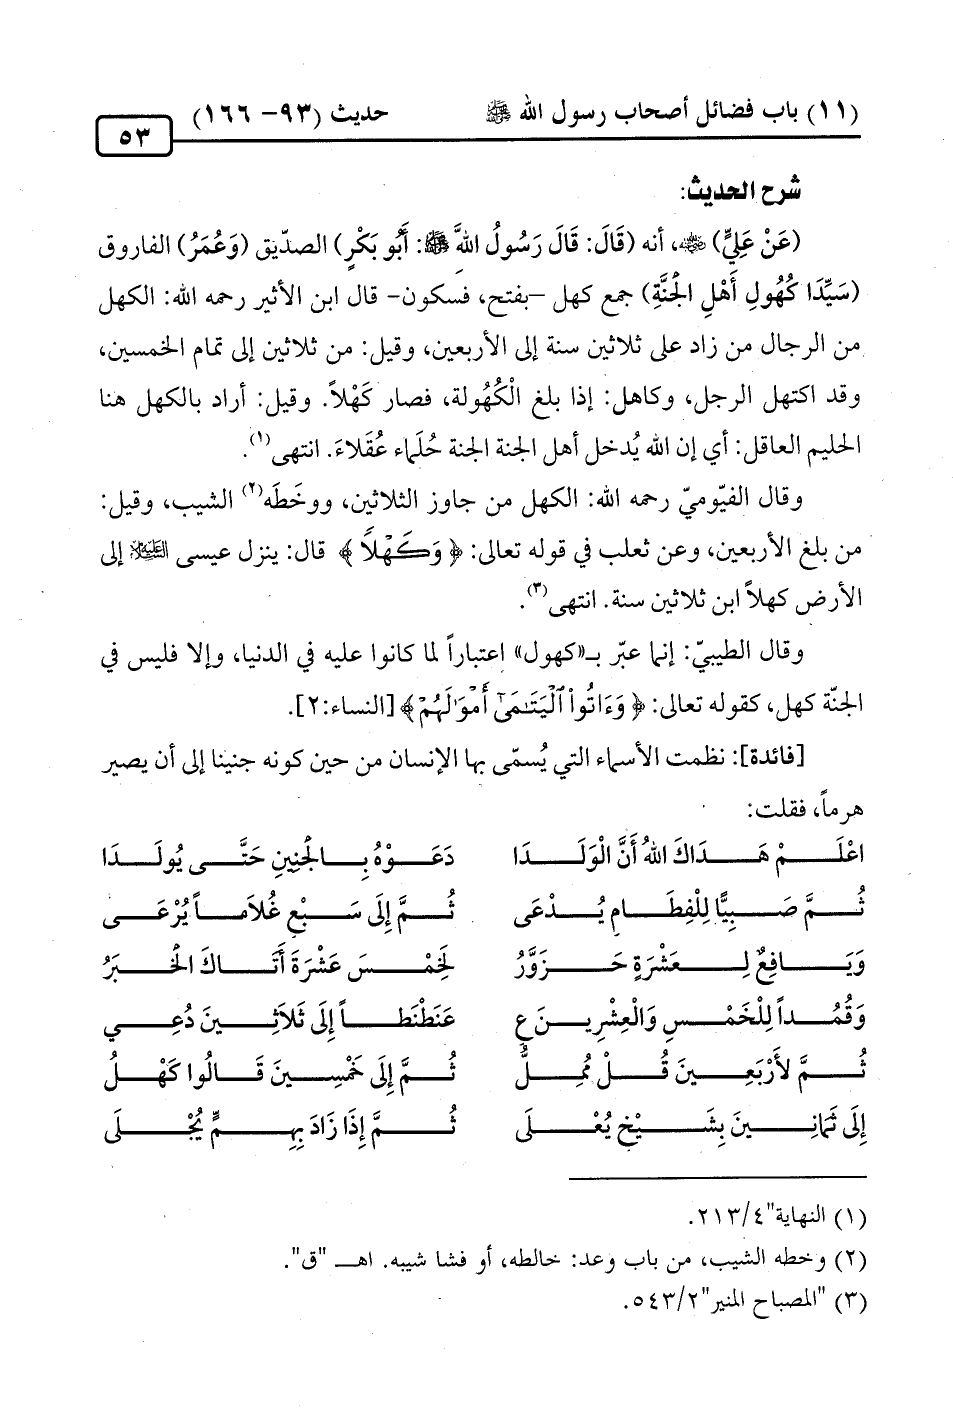 (١١) باب فضائل أصحاب رسول الله ﷺ حديث (٩٣- ١٦٦)
٥٣
شرح الحديث:
(عَنْ عَلِيٍّ) رضي الله عنه، أنه (قَالَ: قَالَ رَسُولُ اللهِ ﷺ: أَبُو بَكْرٍ) الصدّيق (وَعُمَرُ) الفاروق
(سَيِّدَا كُهُولِ أَهْلِ الجَنَّةِ) جمع كهل –بفتح، فسكون- قال ابن الأثير رحمه الله: الكهل
من الرجال من زاد على ثلاثين سنة إلى الأربعين، وقيل: من ثلاثين إلى تمام الخمسين،
وقد اكتهل الرجل، وكاهل: إذا بلغ الْكُهُولة، فصار كَهْلاً. وقيل: أراد بالكهل هنا
الحليم العاقل: أي إن الله يُدخل أهل الجنة الجنة حُلَماء عُقَلاءَ. انتهى(١).
وقال الفيّوميّ رحمه الله: الكهل من جاوز الثلاثين، ووخَطَه(٢) الشيب، وقيل:
من بلغ الأربعين، وعن ثعلب في قوله تعالى: ﴿ وَكَهْلًا ﴾ قال: ينزل عيسى عليه السلام إلى
الأرض كهلاً ابن ثلاثين سنة. انتهى(٣).
وقال الطيبيّ: إنما عبّر بـ«كهول» اعتباراً لما كانوا عليه في الدنيا، وإلا فليس في
الجنّة كهل، كقوله تعالى: ﴿ وَءَاتُوا۟ ٱلْيَتَـٰمَىٰٓ أَمْوَٰلَهُمْ﴾ [النساء:٢].
[فائدة]: نظمت الأسماء التي يُسمّى بها الإنسان من حين كونه جنينا إلى أن يصير
هرماً، فقلت:
اعْلَمْ هَدَاكَ اللهُ أَنَّ الْوَلَدَا دَعَوْهُ بِالجَنِينِ حَتَّى يُولَدَا
ثُمَّ صَبِيًّا لِلْفِطَامِ يُدْعَى ثُمَّ إِلَى سَبْعٍ غُلَاماً يُرْعَى
وَيَافِعٌ لِعَشْرَةٍ حَزَوَّرُ لِخَمْسَ عَشْرَةَ أَتَاكَ الخَبَرُ
وَقُمُداً لِلْخَمْسِ وَالْعِشْرِينَ عِ عَنَطْنَطاً إِلَى ثَلاَثِينَ دُعِي
ثُمَّ لأَرْبَعِينَ قُلْ مُمِلُّ ثُمَّ إِلَى خَمْسِينَ قَالُوا كَهْلُ
إِلَى ثَمَانِينَ بِشَيْخٍ يُعْلَى ثُمَّ إِذَا زَادَ بِهِمٍّ يُجْلَى
(١) النهاية"٢١٣/٤.
(٢) وخطه الشيب، من باب وعد: خالطه، أو فشا شيبه. اهـ "ق".
(٣) "المصباح المنير"٥٤٣/٢.